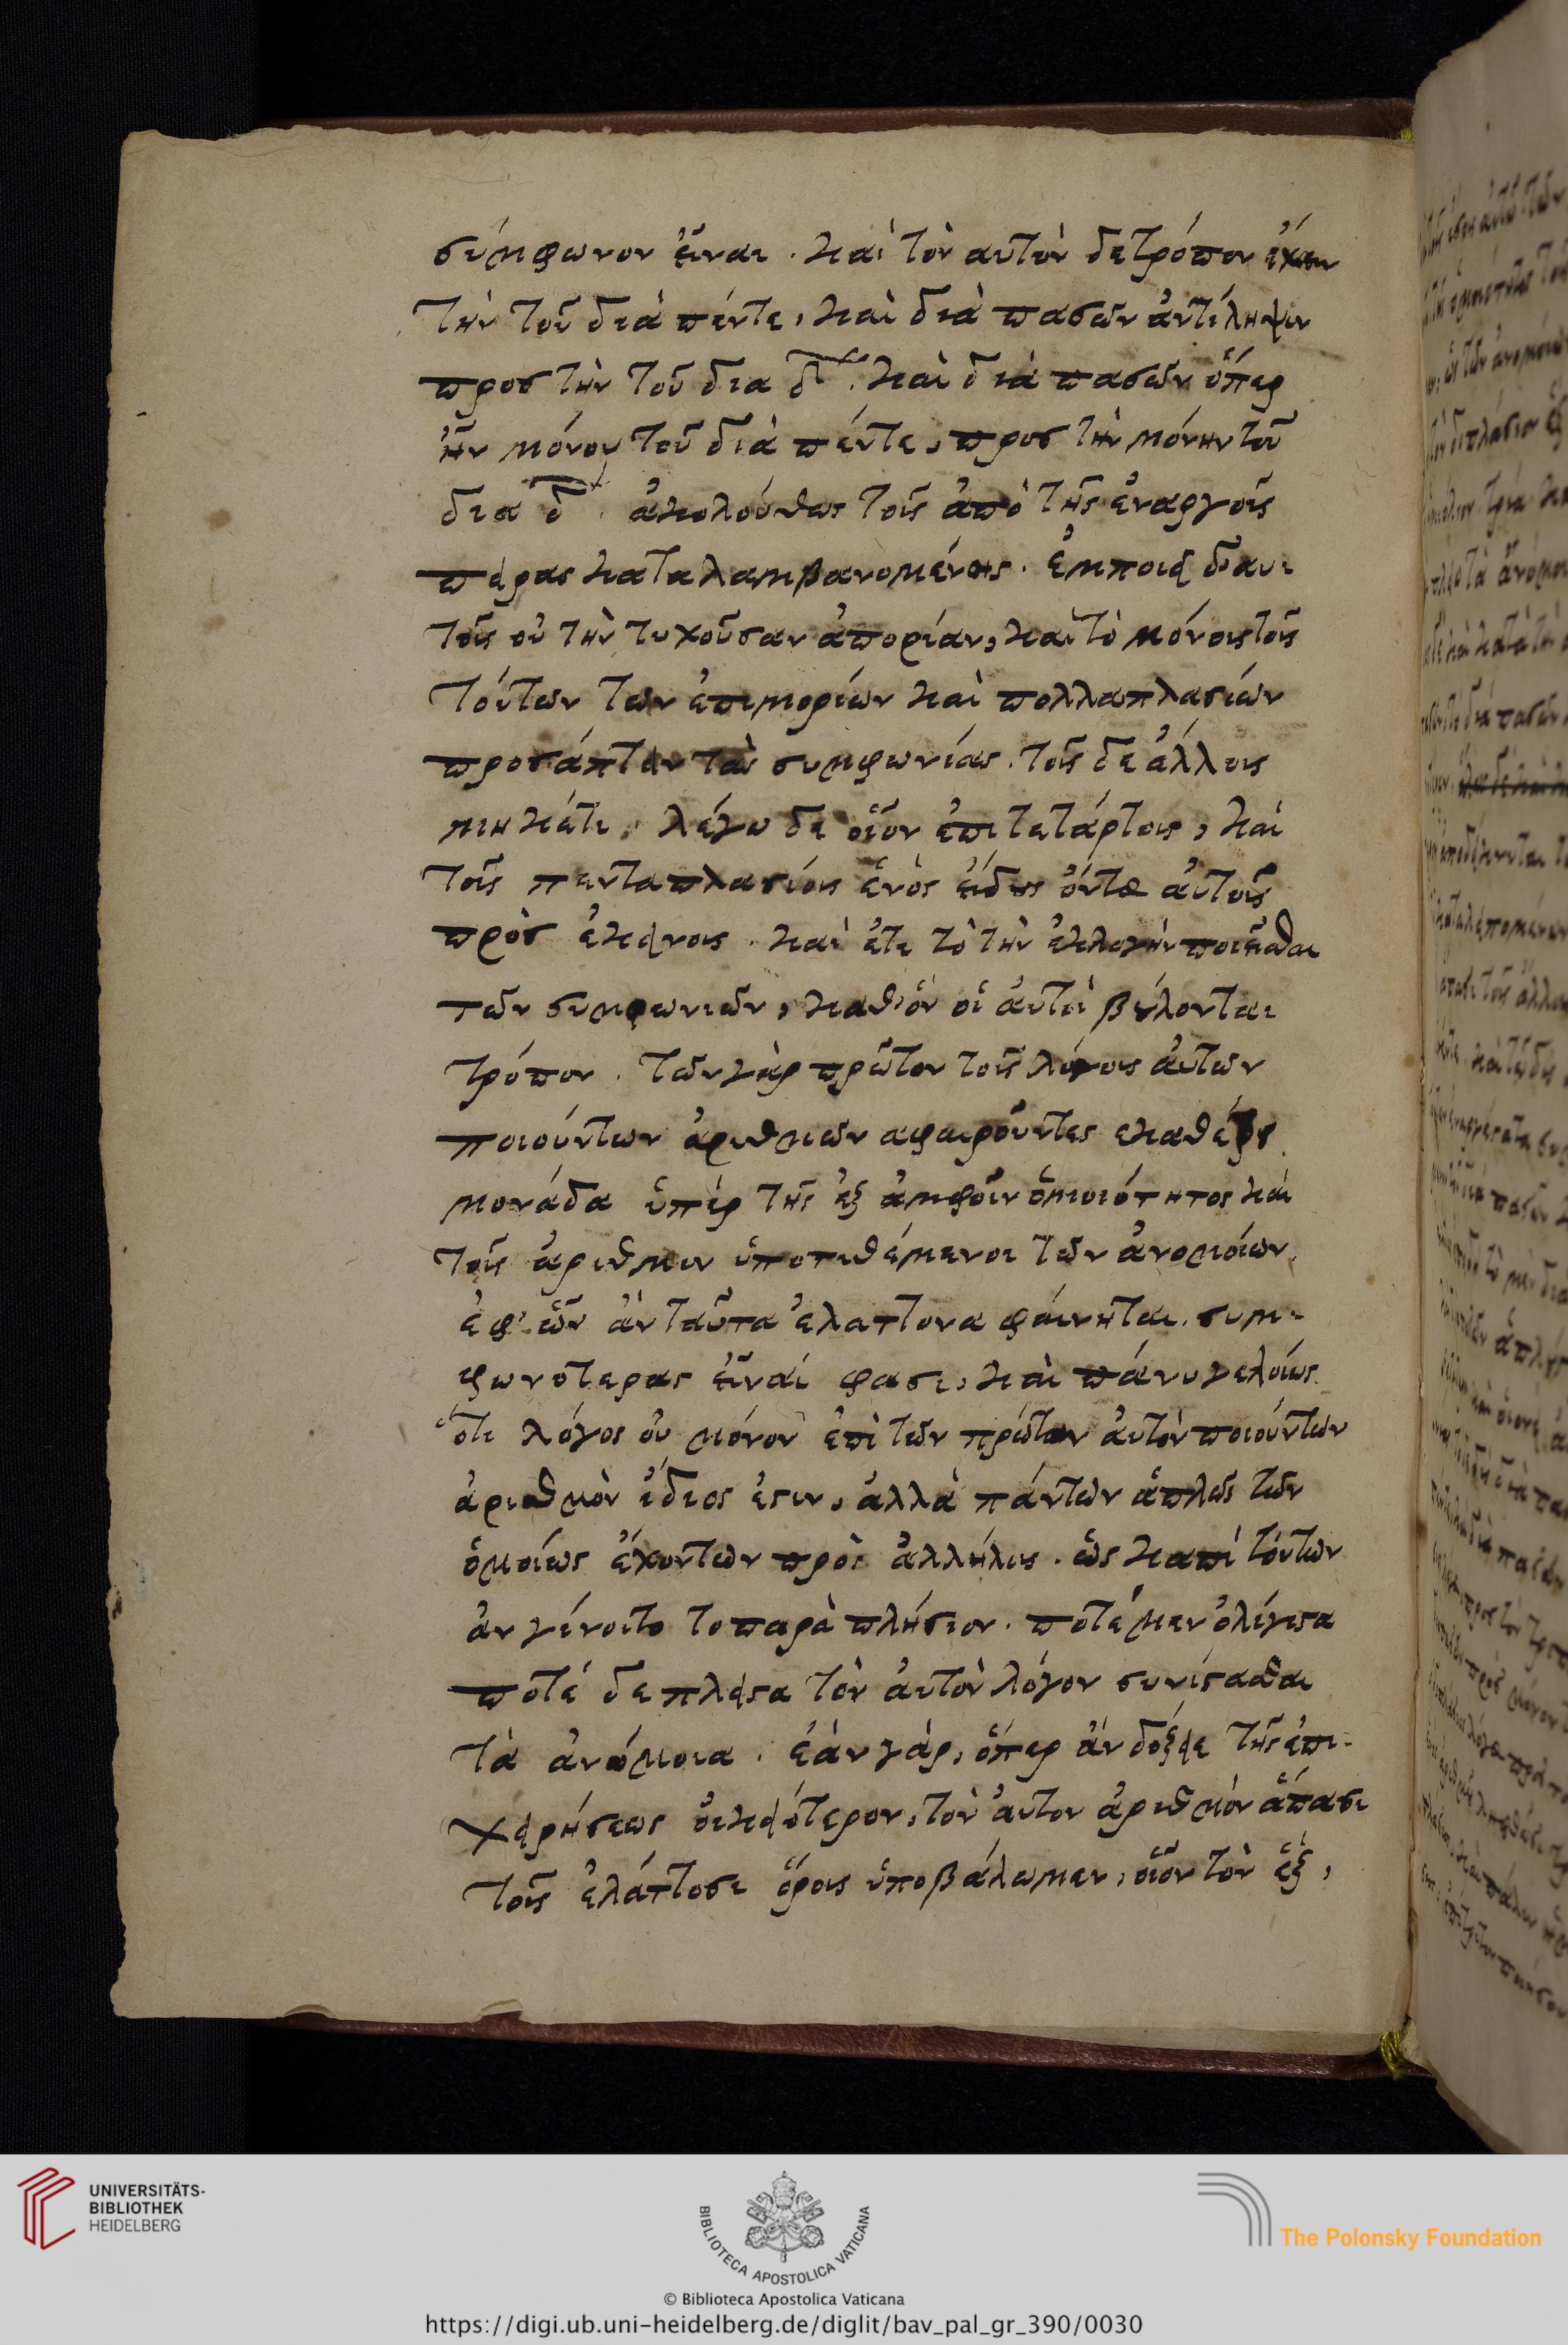 σύμφωνον εἶναι . καὶ τὸν αυτὸν δε τρόπον ἔχειν
τὴν τοῦ διὰ πέντε, καὶ διὰ πασῶν ἀντίληψιν
προσ τὴν τοῦ δια δ . καὶ διὰ πασῶν ὅπερ
ἦν μόνου τοῦ διὰ πέντε, προσ τὴν μόνην τοῦ
δια δ . ἀκολούθως τοῖς ἀπὸ τῆς ἐναργοῖς
πείρας καταλαμβανομένοις . ἐμποιεῖ δ' αυ
τοῖς οὐ τὴν τυχοῦσαν ἀπορίαν, καὶ τὸ μόνοις τοῖς
τούτων των ἐπιμορίων καὶ πολλαπλασίων
προσάπτειν τὰς συμφωνίας . τοῖς δε ἄλλοις
μηκέτι, λέγω δε οἷον ἐπιτετάρτοις, καὶ
τοῖς πενταπλασίοις ἑνὸς εἴδους ὄντας αὐτοῖς
πρὸσ ἐκείνοις . καὶ ἔτι τὸ τὴν ἐκλογὴν ποιεῖσθαι
τῶν συμφωνιῶν, καθ' ὃν οἱ ἀυτοὶ βούλονται
τρόπον . τῶν γὰρ πρῶτον τοῖς λόγοις ἀυτων
ποιούντων ἀριθμῶν αφαιροῦντες εκαθέρου
μονάδα ὑπὲρ τῆς ἐξ ἀμφοῖν ὁμοιότητος καὶ
τοῖς ἀριθμοιν ὑποτιθέμενοι τῶν ἀνομοίων.
ἐφ' ὧν ἂν ταῦτα ἐλαττονα φαίνηται. συμ-
φωνοτερας εἶναί φασι, καὶ πάνυ γελοίως.
ὅτι λόγος οὐ μόνον ἐπὶ των πρώτων ἀυτὸν ποιούντων
ἀριθμὸν ἴδιος ἐστιν, ἀλλὰ πάντων ἁπλῶς τῶν
ὁμοίως ἐχοντων πρὸς ἀλλήλους . ὡς καπὶ τούτων
ἀν γένοιτο το παρὰπλήσιον . ποτέ μεν ὀλίγιστα
ποτέ δε πλεῖστα τὸν ἀυτὸν λόγον συνίστασθαι
τὰ ἀνόμοια . ἐὰν γὰρ, ὅπερ ἂν δόξειε τῆς ἐπι-
χειρήσεως οἰκειότερον, τὸν ἀυτον ἀριθμὸν ἅπασι
τοῖς ἐλάττοσι ὅροις ὑποβάλωμεν, οἷον τὸν ἓξ,
UNIVERSITÄTS-
BIBLIOTHEK
HEIDELBERG
BIBLIOTECA APOSTOLICA VATICANA
The Polonsky Foundation
© Biblioteca Apostolica Vaticana
https://digi.ub.uni-heidelberg.de/diglit/bav_pal_gr_390/0030